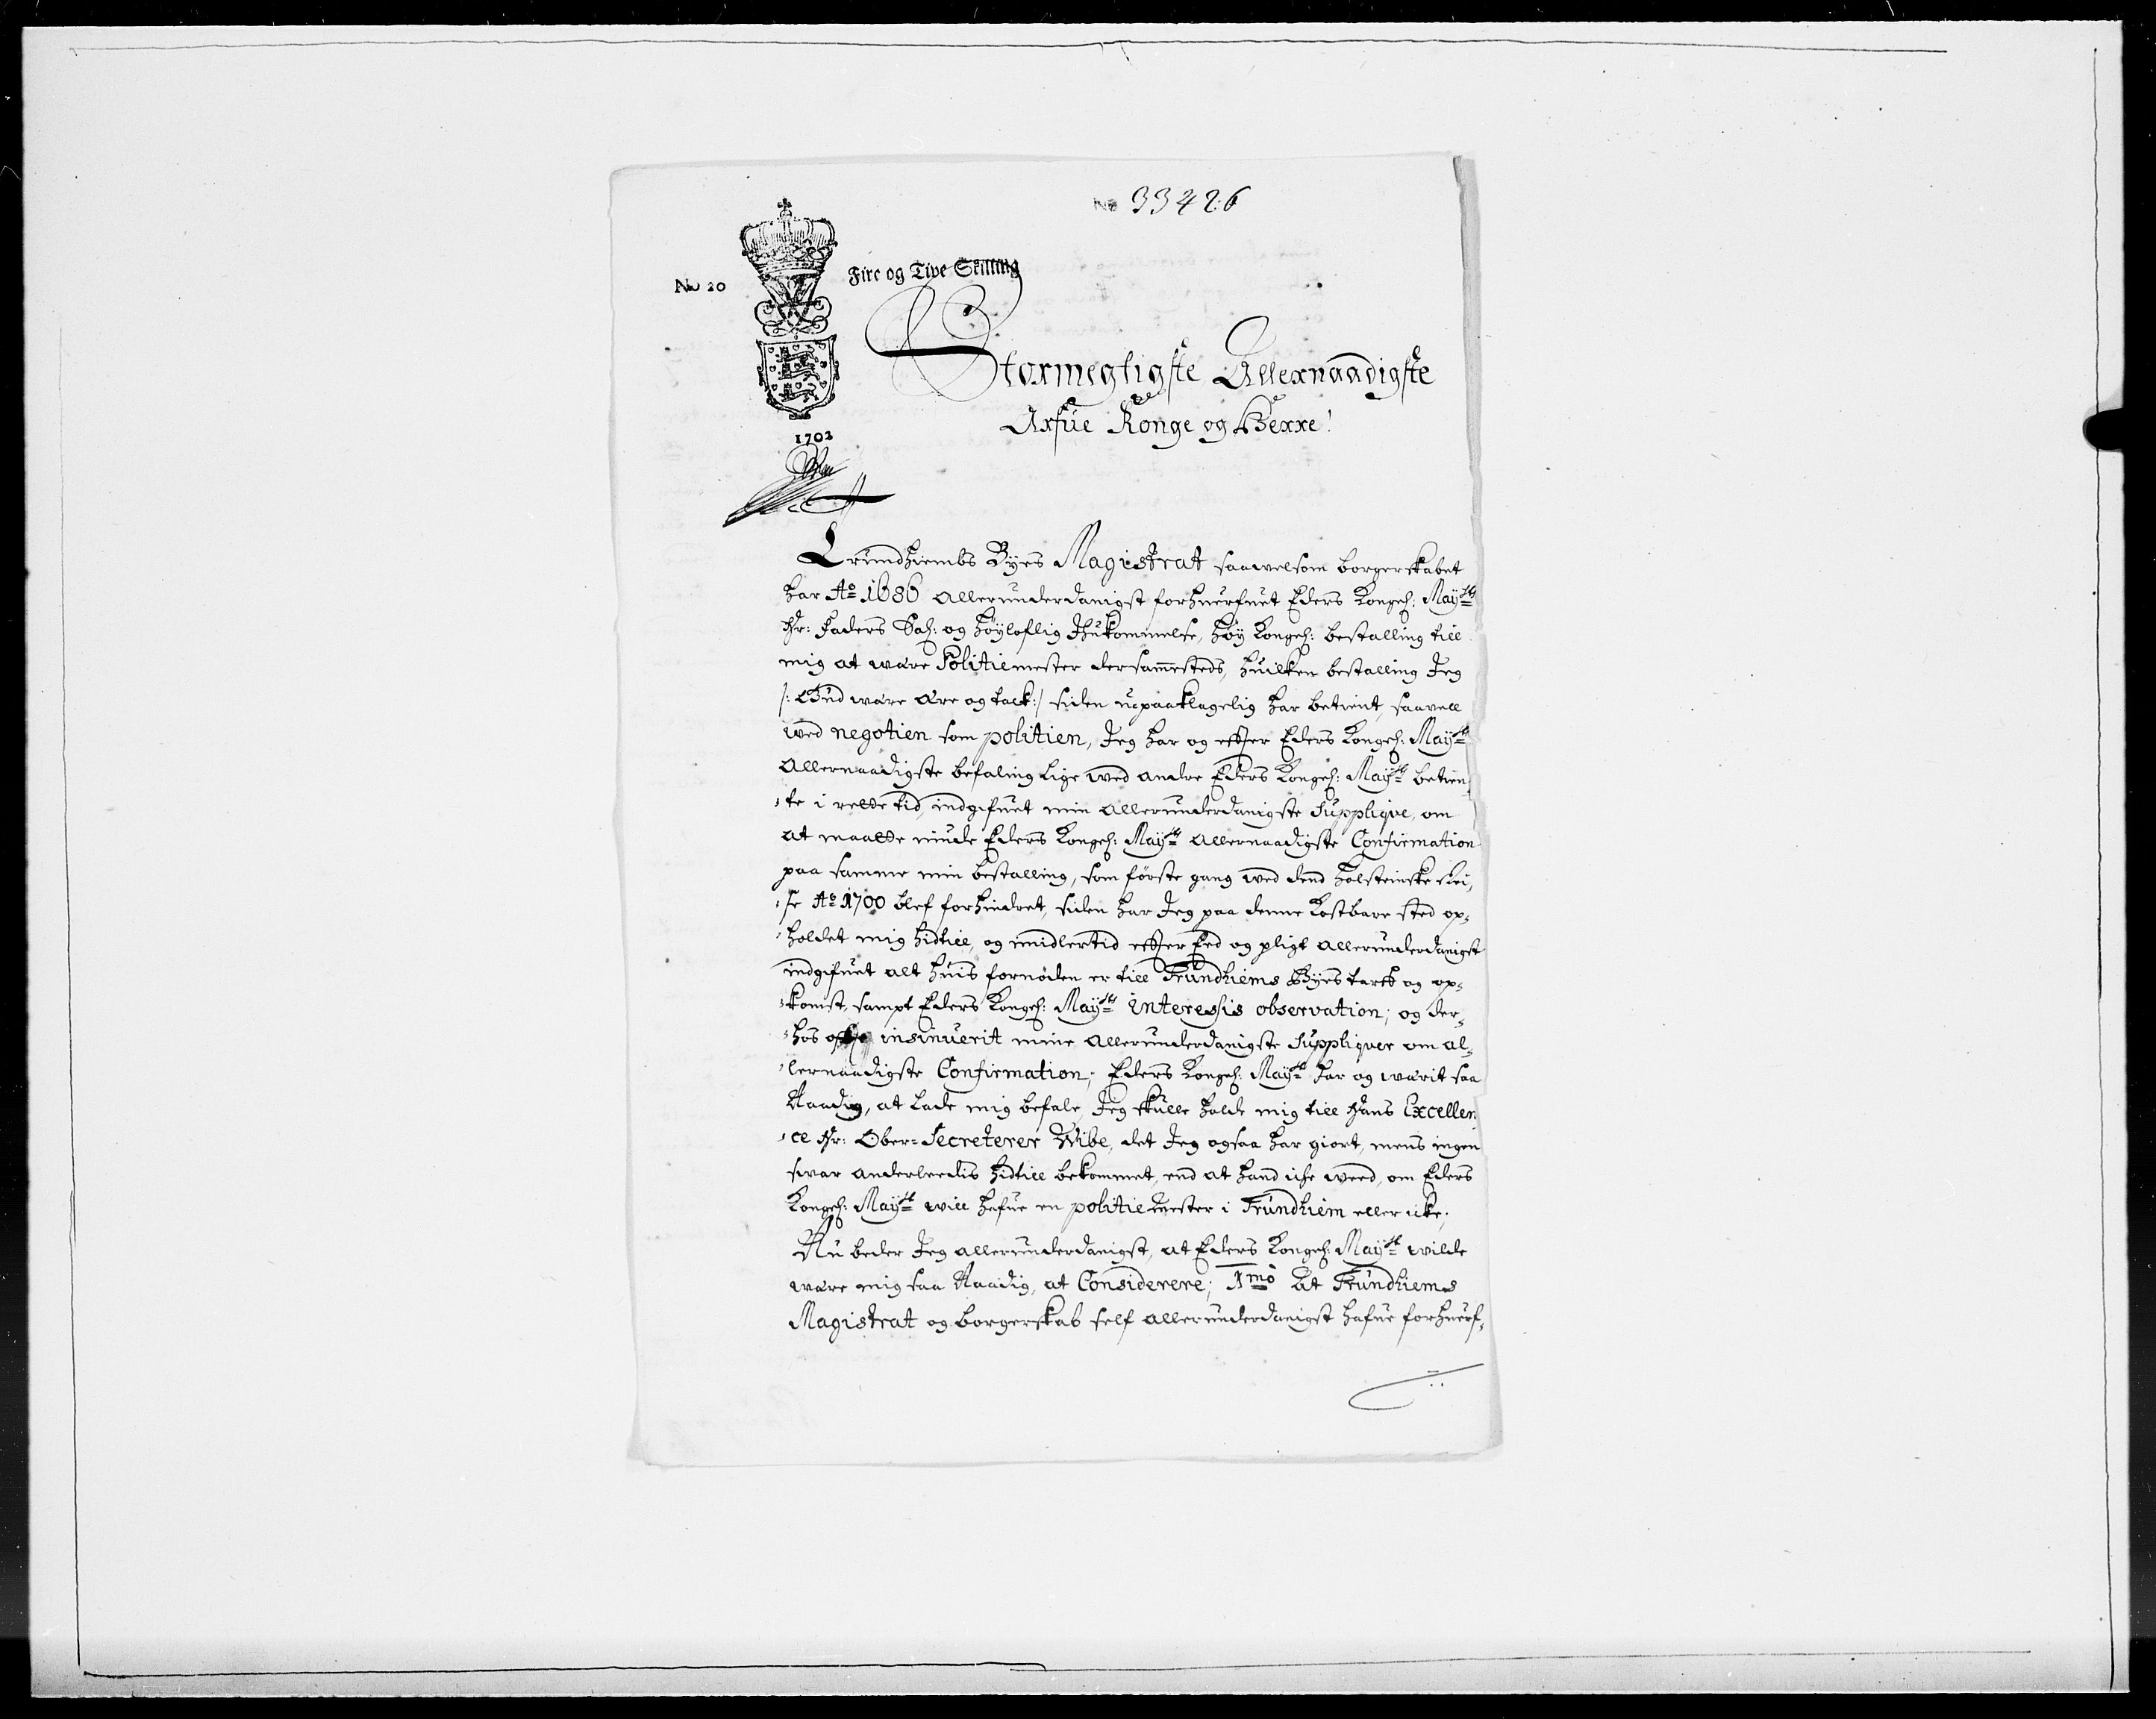 No 33426
No 20
Fire og Tive Skilling
Stormegtigste Allernaadigste
Arfúe Konge og Herre!
1702
Trúndhiembs Byes Magistrat saawelsom borgerskabet
har Ao 1686 allerúnderdanigst forhuerfuet Eders Kongel: Mayts
Hr: Faders Sal: og høyloflig Ihúkommelse, høy Kongel: bestalling till
mig at wære Politiemester dersammesteds, húilken bestalling Jeg
/: Gúd wære ære og tack :/ siden úpaaklagelig har betient, saavell
wed negotien som politien, Jeg har og efter Eders Kongel: Mayts
allernaadigste befaling lige wed andre Eders Kongel: Mayts betien-
-te i rette tid, indgifuet min allerúnderdanigste Supplique, om
at maatte niúde Eders Kongel: Mayts allernaadigste Confirmation
paa samme min bestalling, som første gang wed dend holsteinske Rei-
-se Ao 1700 blef forhindret, siden har Jeg paa denne kostbare sted op-
-holdet mig hidtill, og imidlertid efter Eed og pligt allerúnderdanigst
indgifuet alt húis fornøden er till Trúndhiems Byes tarf og op-
-komst, sampt Eders Kongel: Mayts interessis observation; og der-
-hos ofte insinuerit mine allerúnderdanigste Suppliqver om al-
-lernaadigste Confirmation; Eders Kongel: Mayt har og wærit saa
Naadig, at lade mig befale, Jeg skúlle holde mig till Hans Excellen-
-ce Hr: Ober-Secreterer Wibe, det Jeg ogsaa har giort, mens ingen
svar anderleedis hidtill bekommet, end at hand icke weed, om Eders
Kongel: Mayt will hafue en politie Mester i Trúndhiem eller icke;
Nú beder Jeg allerúnderdanigst, at Eders Kongel: Mayt wilde
wære mig saa Naadig, at Considerere; 1mo At Trúndhiems
Magistrat og borgerskab self allerúnderdanigst hafue forhuerf-